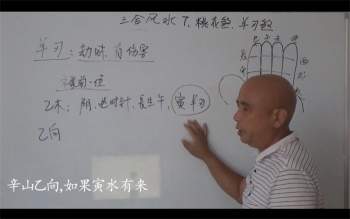 三合风水7、桃花煞、羊刃煞
羊刃:劫财,自伤害
禄前一位
乙木:阴,逆时针,长生午,寅羊刃
乙向
辛山乙向,如果寅水有来